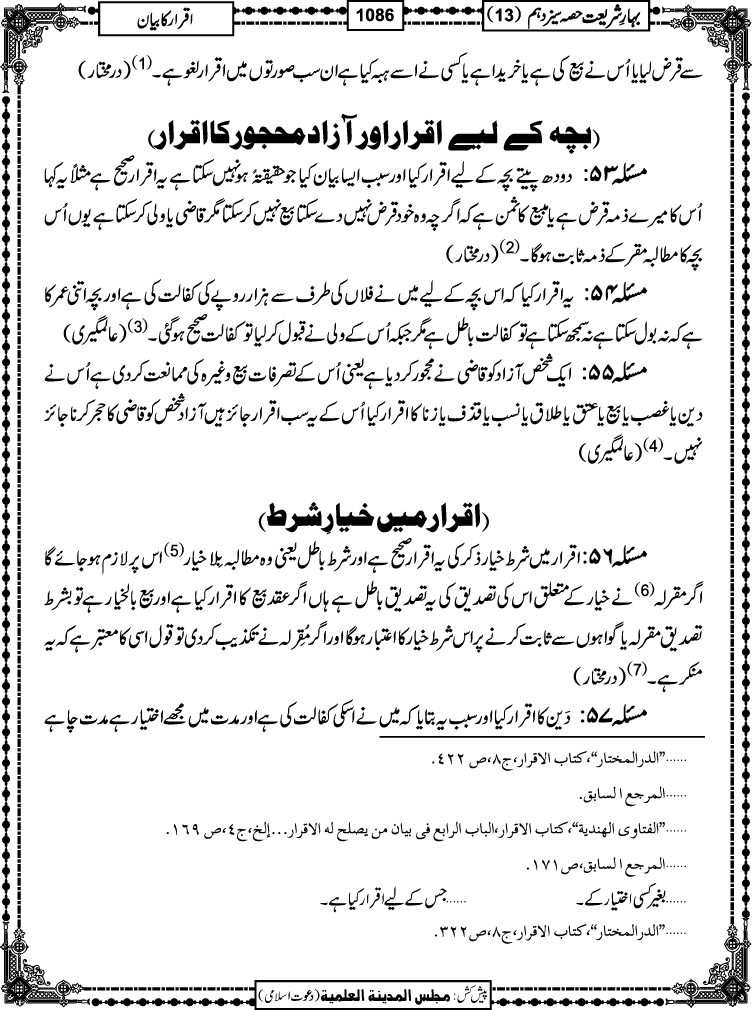 بہارِ شریعت حصہ سیزدہم (13)
1086
اقرار کا بیان
سے قرض لیا یا اُس نے بیع کی ہے یا خریدا ہے یا کسی نے اسے ہبہ کیا ہے ان سب صورتوں میں اقرار لغو ہے۔(1) (درمختار)
(بچہ کے لیے اقرار اور آزاد محجور کا اقرار)
مسئلہ ۵۳: دودھ پیتے بچہ کے لیے اقرار کیا اور سبب ایسا بیان کیا جو حقیقۃً ہو نہیں سکتا ہے یہ اقرار صحیح ہے مثلاً یہ کہا
اُس کا میرے ذمہ قرض ہے یا مبیع کا ثمن ہے کہ اگرچہ وہ خود قرض نہیں دے سکتا بیع نہیں کرسکتا مگر قاضی یا ولی کرسکتا ہے یوں اُس
بچہ کا مطالبہ مقر کے ذمہ ثابت ہوگا۔(2) (درمختار)
مسئلہ ۵۴: یہ اقرار کیا کہ اس بچہ کے لیے میں نے فلاں کی طرف سے ہزار روپے کی کفالت کی ہے اور بچہ اتنی عمر کا
ہے کہ نہ بول سکتا ہے نہ سمجھ سکتا ہے تو کفالت باطل ہے مگر جبکہ اُس کے ولی نے قبول کرلیا تو کفالت صحیح ہوگئی۔(3) (عالمگیری)
مسئلہ ۵۵: ایک شخص آزاد کو قاضی نے محجور کردیا ہے یعنی اُس کے تصرفات بیع وغیرہ کی ممانعت کردی ہے اُس نے
دین یا غصب یا بیع یا عتق یا طلاق یا نسب یا قذف یا زنا کا اقرار کیا اُس کے یہ سب اقرار جائز ہیں آزاد شخص کو قاضی کا حجر کرنا جائز
نہیں۔(4) (عالمگیری)
(اقرار میں خیارِ شرط)
مسئلہ ۵۶: اقرار میں شرط خیار ذکر کی یہ اقرار صحیح ہے اور شرط باطل یعنی وہ مطالبہ بِلا خیار(5) اس پر لازم ہو جائے گا
اگر مقرلہ(6) نے خیار کے متعلق اس کی تصدیق کی یہ تصدیق باطل ہے ہاں اگر عقد بیع کا اقرار کیا ہے اور بیع بالخیار ہے تو بشرط
تصدیق مقرلہ یا گواہوں سے ثابت کرنے پر اس شرط خیار کا اعتبار ہوگا اور اگر مُقِرلہ نے تکذیب کردی تو قول اسی کا معتبر ہے کہ یہ
منکر ہے۔(7) (درمختار)
مسئلہ ۵۷: دَین کا اقرار کیا اور سبب یہ بتایا کہ میں نے اسکی کفالت کی ہے اور مدت میں مجھے اختیار ہے مدت چاہے
......”الدرالمختار“،کتاب الاقرار،ج۸،ص ٤٢٢.
......المرجع السابق.
......”الفتاوی الھندیة“،کتاب الاقرار،الباب الرابع فی بیان من یصلح له الاقرار...إلخ،ج٤،ص ١٦٩.
......المرجع السابق،ص ١٧١.
......بغیر کسی اختیار کے۔ ......جس کے لیے اقرار کیا ہے۔
......”الدرالمختار“،کتاب الاقرار،ج۸،ص ٣٢٢.
پیش کش: مجلس المدینة العلمیة (دعوت اسلامی)